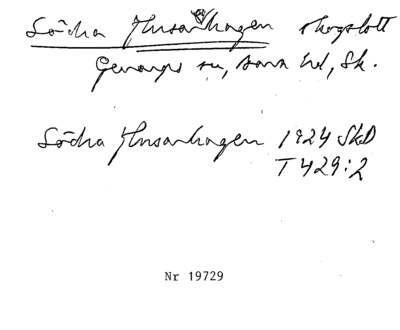 Södra Husarhagen skogslott
Genarps sn, Bara hd, Sk.
Södra Husarhagen SkD
T 429:2
Nr 19729